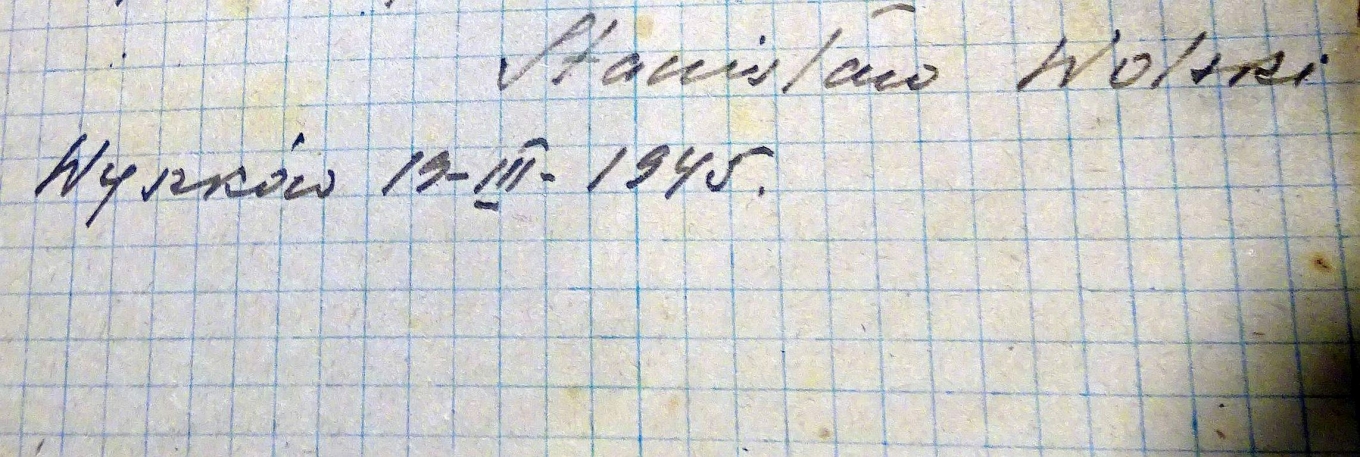 Stanisław Wolski
Wyszków 19-III-1945.